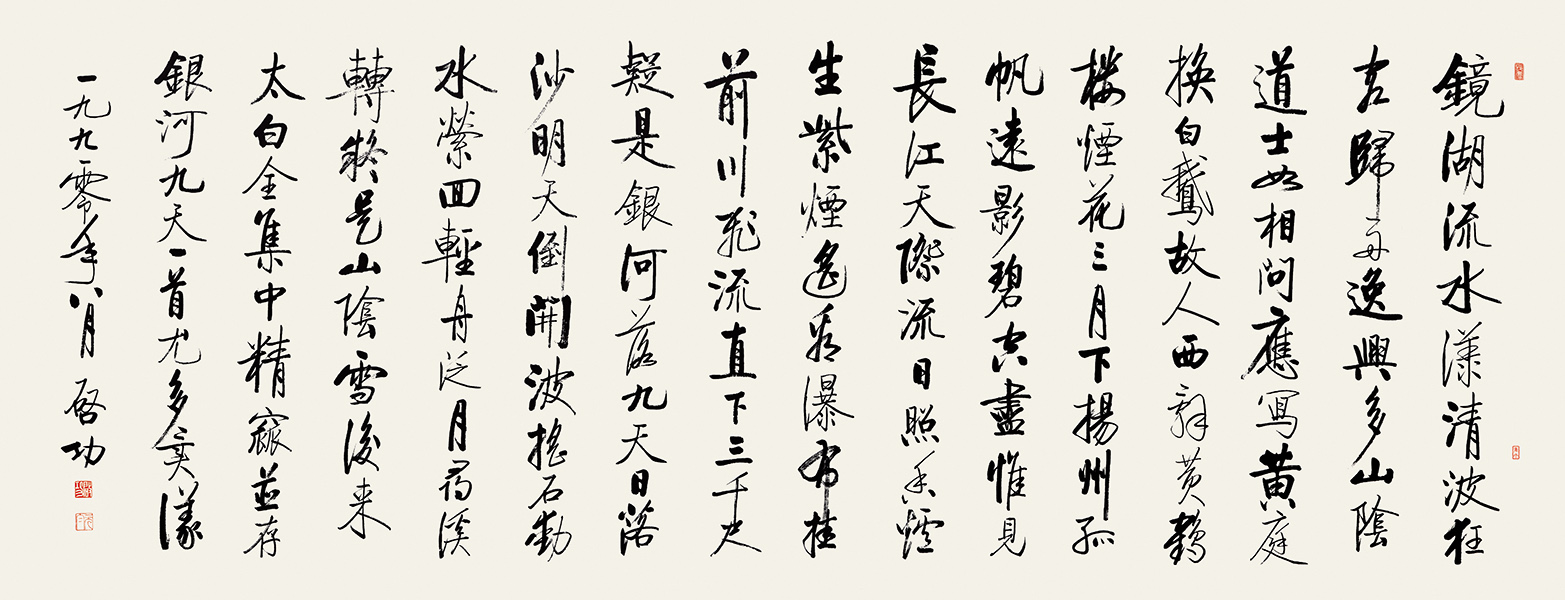 鏡湖流水漾清波狂
客歸舟逸興多山陰
道士如相問應寫黃庭
換白鵝故人西辭黃鶴
樓煙花三月下揚州孤
帆遠影碧空盡惟見
長江天際流日照香爐
生紫煙遙看瀑布挂
前川飛流直下三千尺
疑是銀河落九天日落
沙明天倒開波搖石動
水縈回輕舟泛月尋溪
轉疑是山陰雪後来
太白全集中精窳並存
銀河九天一首尤多異議
一九九零年八月 啟功